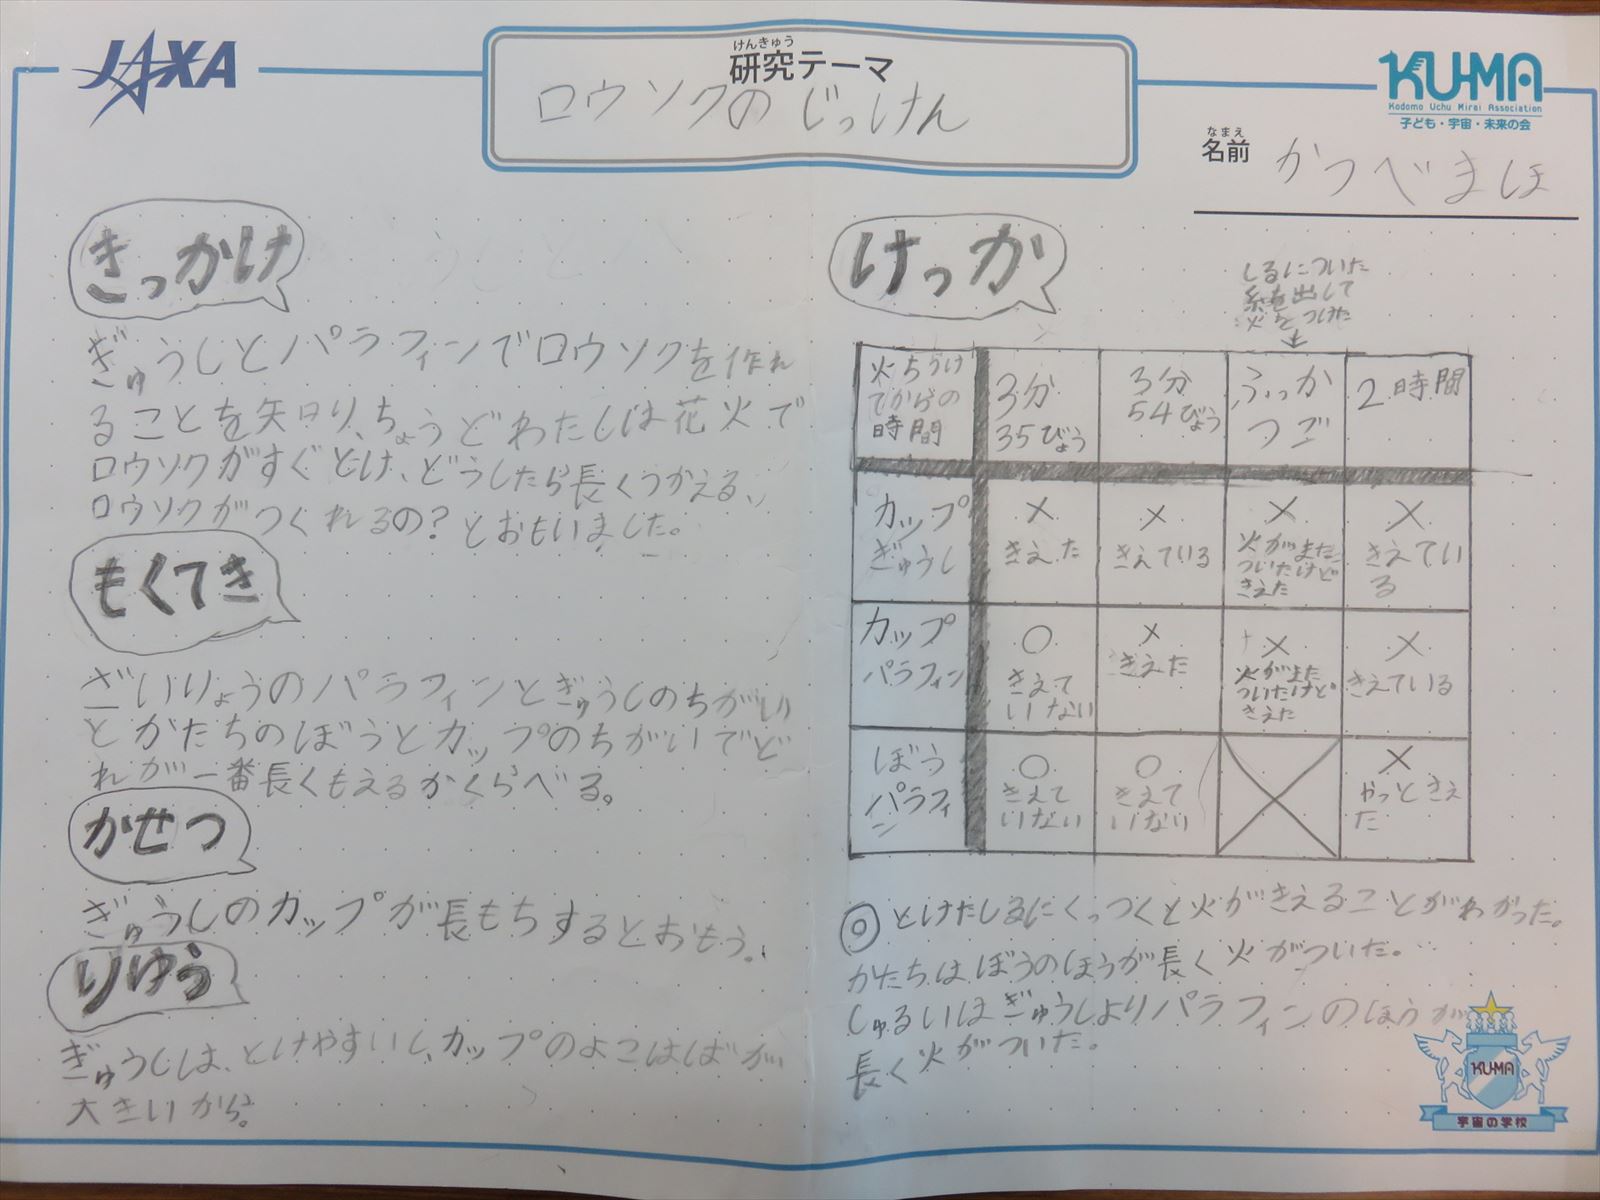 JAXA
けんきゅう
研究テーマ
ロウソクのじっけん
KU-MA
Kodomo Uchu Mirai Association
子ども・宇宙・未来の会
なまえ
名前
かつべまほ
きっかけ
ぎゅうしとパラフィンでロウソクを作れ
ることを知り、ちょうどわたしは花火で
ロウソクがすぐとけ、どうしたら長くつかえる、
ロウソクがつくれるの?とおもいました。
もくてき
ざいりょうのパラフィンとぎゅうしのちがい
とかたちのぼうとカップのちがいでど
れが一番長くもえるかくらべる。
かせつ
ぎゅうしのカップが長もちするとおもう。
りゆう
ぎゅうしは、とけやすいし、カップのよこはばが
大きいから。
けっか
しるについた
糸を出して
火をつけた
火をつけ
てからの
時間
3分
35びょう
3分
54びょう
ふっか
つご
2時間
カップ
ぎゅうし
×
きえた
×
きえている
×
火がまた
ついたけど
きえた
×
きえてい
る
カップ
パラフィン
○
きえて
いない
×
きえた
×
火がまた
ついたけど
きえた
×
きえている
ぼう
パラフィ
ン
○
きえて
いない
○
きえて
いない
×
やっときえ
た
◎とけたしるにくっつくと火がきえることがわかった。
かたちはぼうのほうが長く火がついた。
しゅるいはぎゅうしよりパラフィンのほうが
長く火がついた。
KU-MA
宇宙の学校